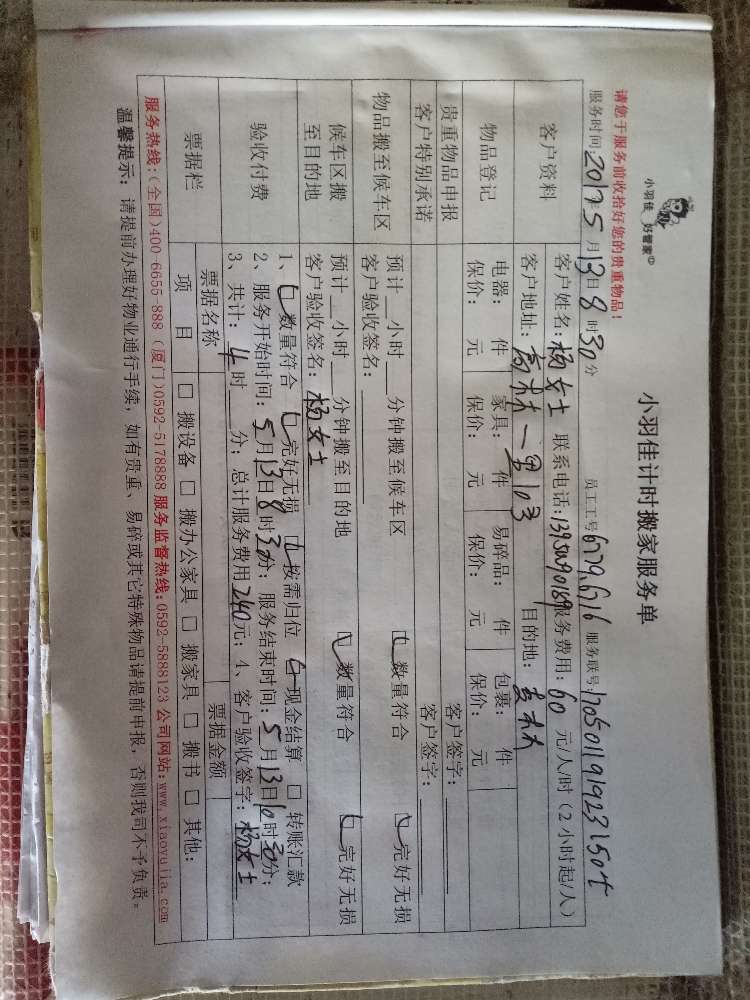 小羽佳 好管家
小羽佳计时搬家服务单
请您于服务前收拾好您的贵重物品！
服务时间：2017.5月13日8时30分 员工工号6779,6716 服务联号：
客户资料
客户姓名：杨女士 联系电话：服务费用：60元/人/时（2小时起/人）
客户地址：高林一里103 目的地：高林
物品登记
电器： 件 家具： 件 易碎品： 件 包裹： 件
保价： 元 保价： 元 保价： 元 保价： 元
贵重物品申报 客户签字：
客户特别承诺 客户签字：
物品搬至候车区
预计__小时__分钟搬至候车区 数量符合 完好无损
客户验收签名：
候车区搬至目的地
预计__小时__分钟搬至目的地 数量符合 完好无损
客户验收签名：杨女士
验收付费
1、数量符合 完好无损 按需归位 现金结算 □ 转账汇款
2、服务开始时间：5月13日8时30分；服务结束时间：5月13日10时30分；
3、共计：4时__分；总计服务费用240元；4、客户验收签字：杨女士
票据栏
票据名称 票据金额
项 目 □ 搬设备 □ 搬办公家具 □ 搬家具 □ 搬书 □ 其他：
服务热线：(全国)400-6655-888 (厦门)0592-5178888 服务监督热线：0592-5888123 公司网站：www.xiaoyujia.com
温馨提示：请提前办理好物业通行手续，如有贵重、易碎或其它特殊物品请提前申报，否则我司不予负责。